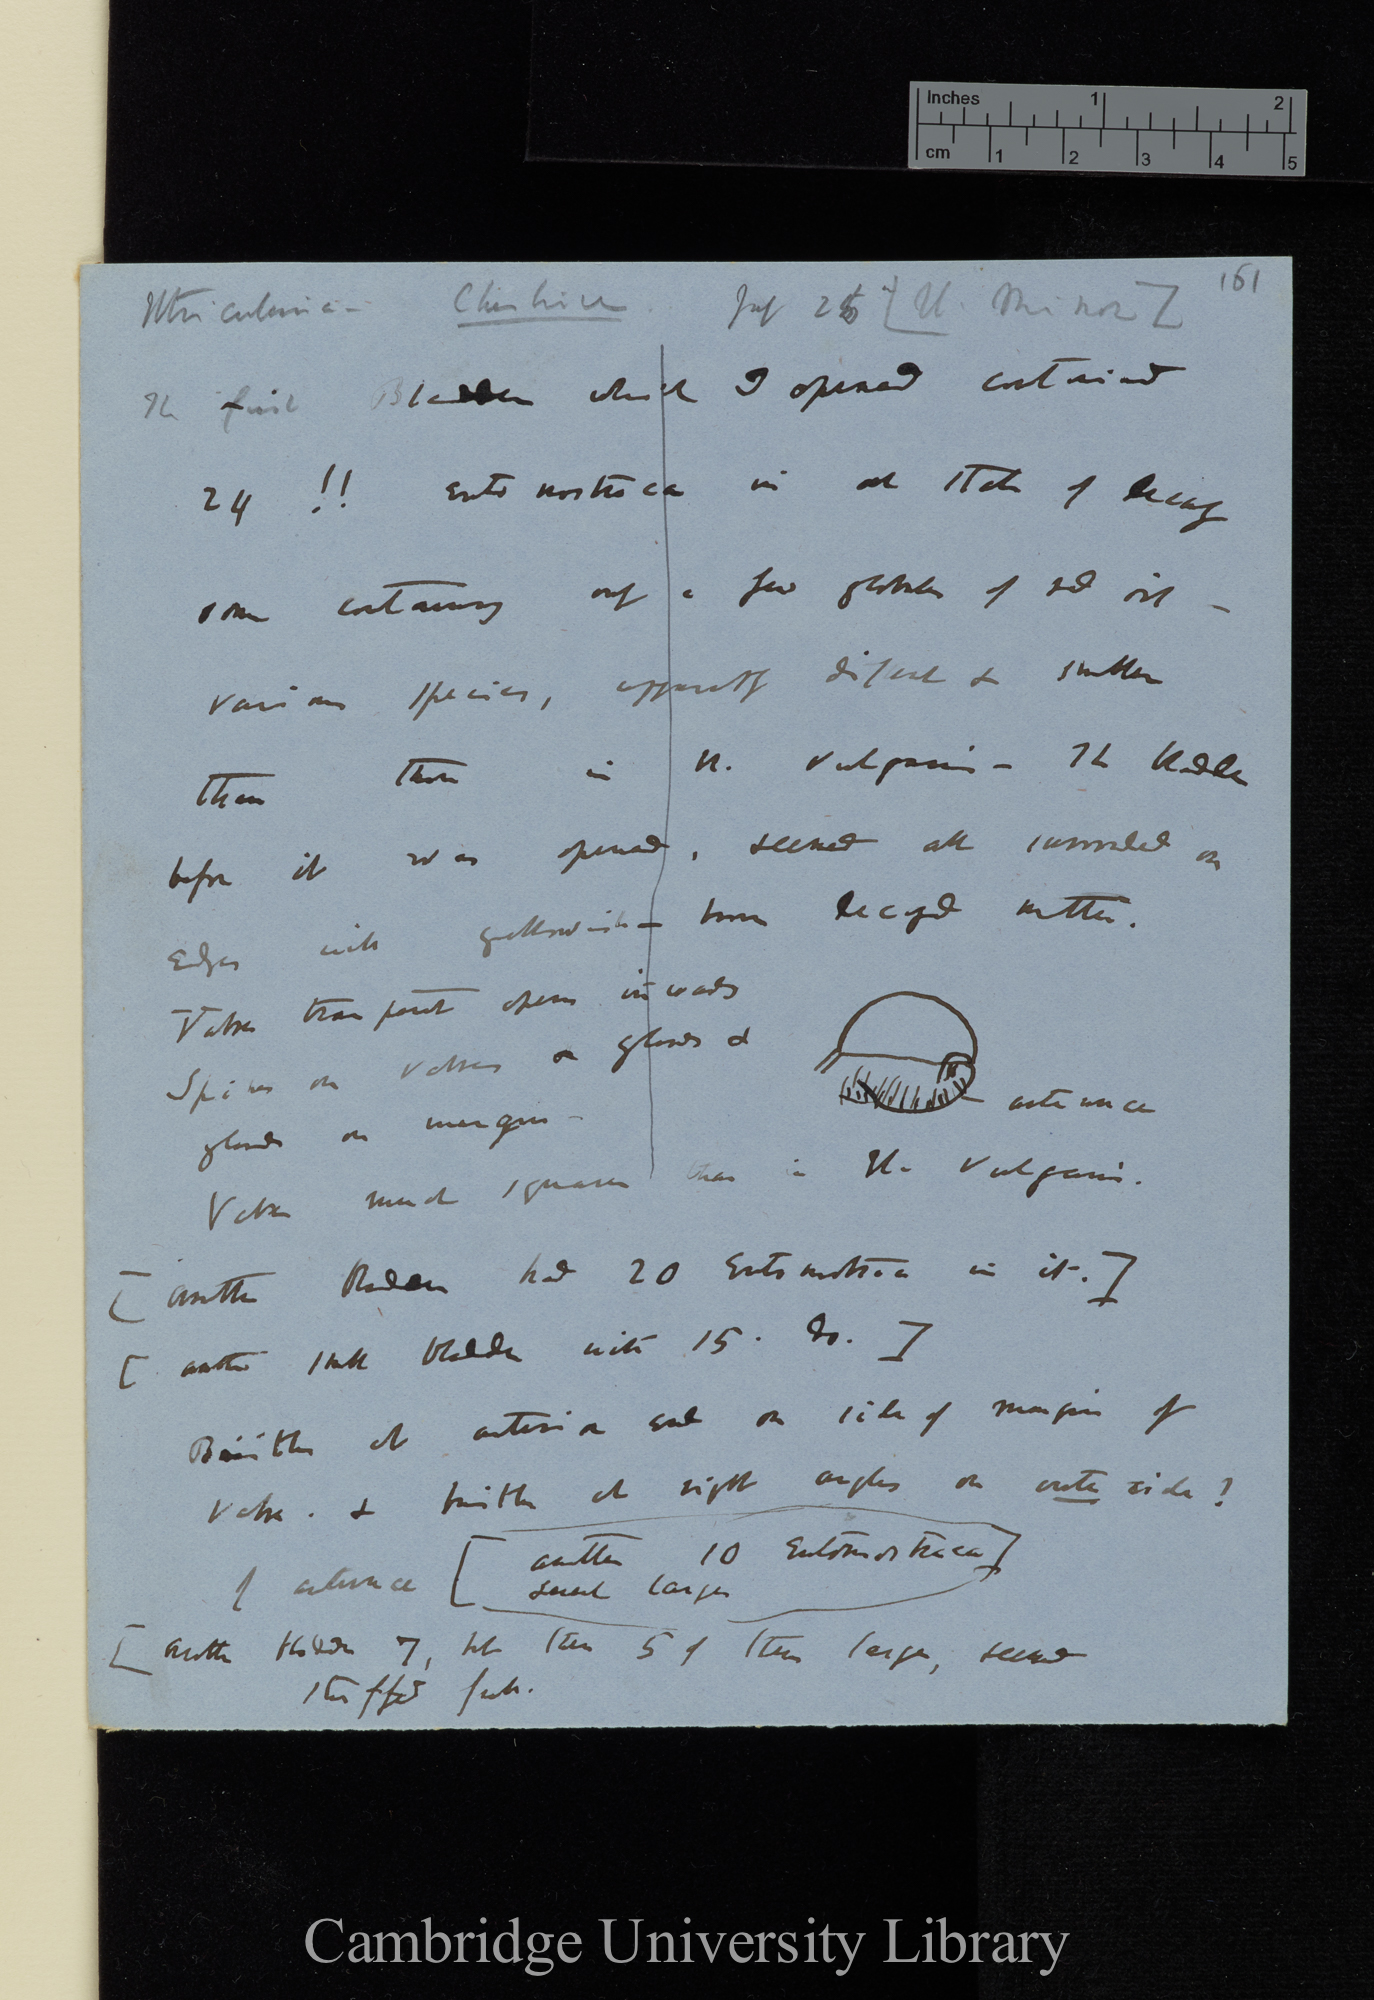 Inches 1 2
cm 1 2 3 4 5
161
Utricularia – Cheshire July 25 [U. minor]
The first Bladder which I opened contained
24 !! Entomostraca in all state of decay
some containing only a few globules of red oil –
various species, apparently different & smaller
than those in U. vulgaris – The bladder
before it was opened, seemed all surrounded on
edges with yellowish – brown decayed matter.
Valve transparent opens inwards
Spines on valves or glands &
glands on margin –
antennae
Valve much squarer than in U. vulgaris.
[another Bladder had 20 Entomostraca in it.]
[another small bladder with 15. do.]
Bristles at anterior end on side of margin of
valve. & bristles at right angles on outer side?
of antennae [another 10 Entomostraca]
several larger
[another bladder 7, but then 5 of them larger, seemed
stuffed full.
Cambridge University Library